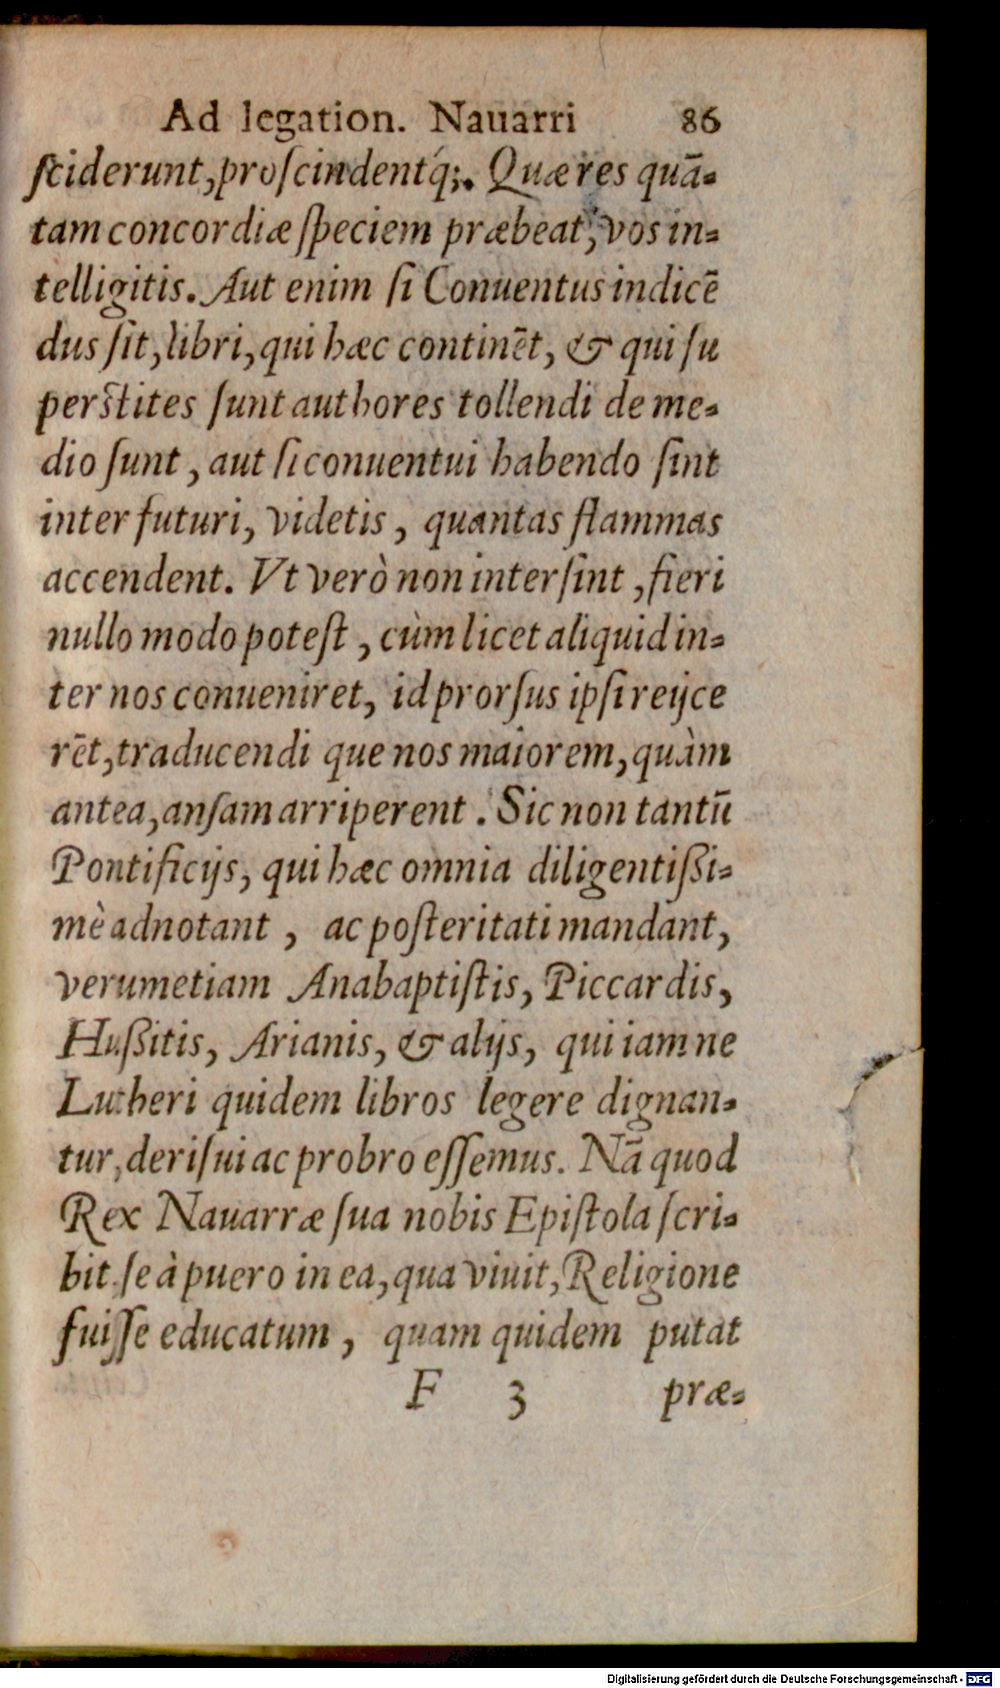 Ad legation. Nauarri 86
ſciderunt, proſcindentq́;. Quæ res quā-
tam concordiæ ſpeciem præbeat, vos in-
telligitis. Aut enim ſi Conuentus indicē
dus ſit, libri, qui hæc continēt, & qui ſu
perſtites ſunt authores tollendi de me-
dio ſunt, aut ſi conuentui habendo ſint
inter futuri, videtis, quantas flammas
accendent. Vt verò non interſint, fieri
nullo modo poteſt, cùm licet aliquid in-
ter nos conueniret, id prorſus ipſi reijce
rēt, traducendi que nos maiorem, quàm
antea, anſam arriperent. Sic non tantū
Pontificijs, qui hæc omnia diligentißi-
mè adnotant, ac poſteritati mandant,
verumetiam Anabaptiſtis, Piccardis,
Hußitis, Arianis, & alijs, qui iam ne
Lutheri quidem libros legere dignan-
tur, deriſui ac probro eſſemus. Nā quod
Rex Nauarræ ſua nobis Epiſtola ſcri-
bit ſe à puero in ea, qua viuit, Religione
fuiſſe educatum, quam quidem putat
F 3 præ-
Digitalisierung gefördert durch die Deutsche Forschungsgemeinschaft - DFG